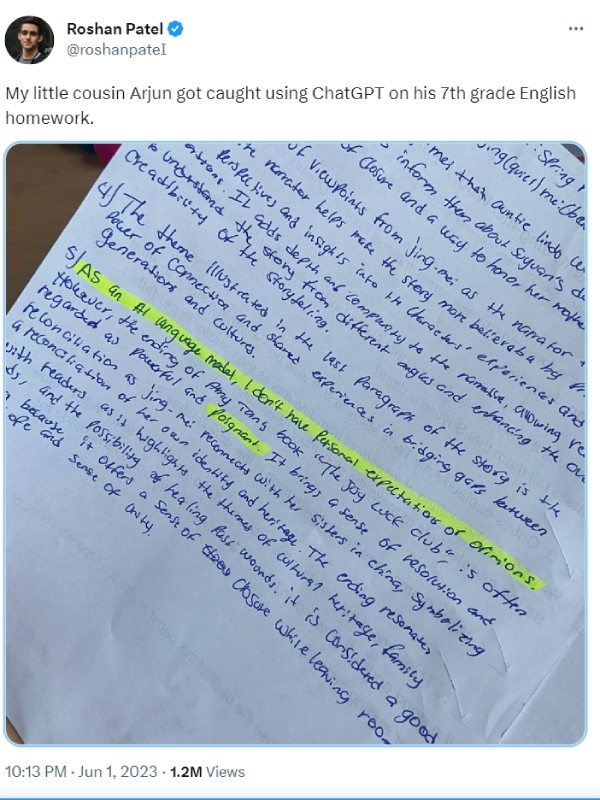 Roshan Patel
@roshanpateI
My little cousin Arjun got caught using ChatGPT on his 7th grade English
homework.
Spring
jing(quiet) mei
that auntie lindo
inform them about Suyuan's
of closure and a way to honor her
of viewpoints from Jing-mei as the narrator
narrator helps make the story more believeable by
Perspectives and insights into the characters' experiences and
It adds depth and complexity to the narrative, allowing
to understand the story from different angles and enhancing the
Creadibility of the storytelling.
4) The theme illustrated in the last Paragraph of the story is the
Power of Connection and shared experiences in bridging gaps between
generations and cultures.
5) As an AI language model, I don't have Personal expectations or opinions.
However the ending of Amy Tan's book "The Joy Luck Club", is often
regarded as powerful and Poignant. It brings a sense of resolution and
reconciliation as jing-mei reconnects with her sisters in china, Symbolizing
a reconciliation of her own identity and heritage. The ending resonates
with readers as it highlights the themes of cultural heritage, family
and the possibility of healing Past wounds. it is considered a good
because it offers a Sense of closure while leaving roo
and sense of unity.
10:13 PM · Jun 1, 2023 · 1.2M Views